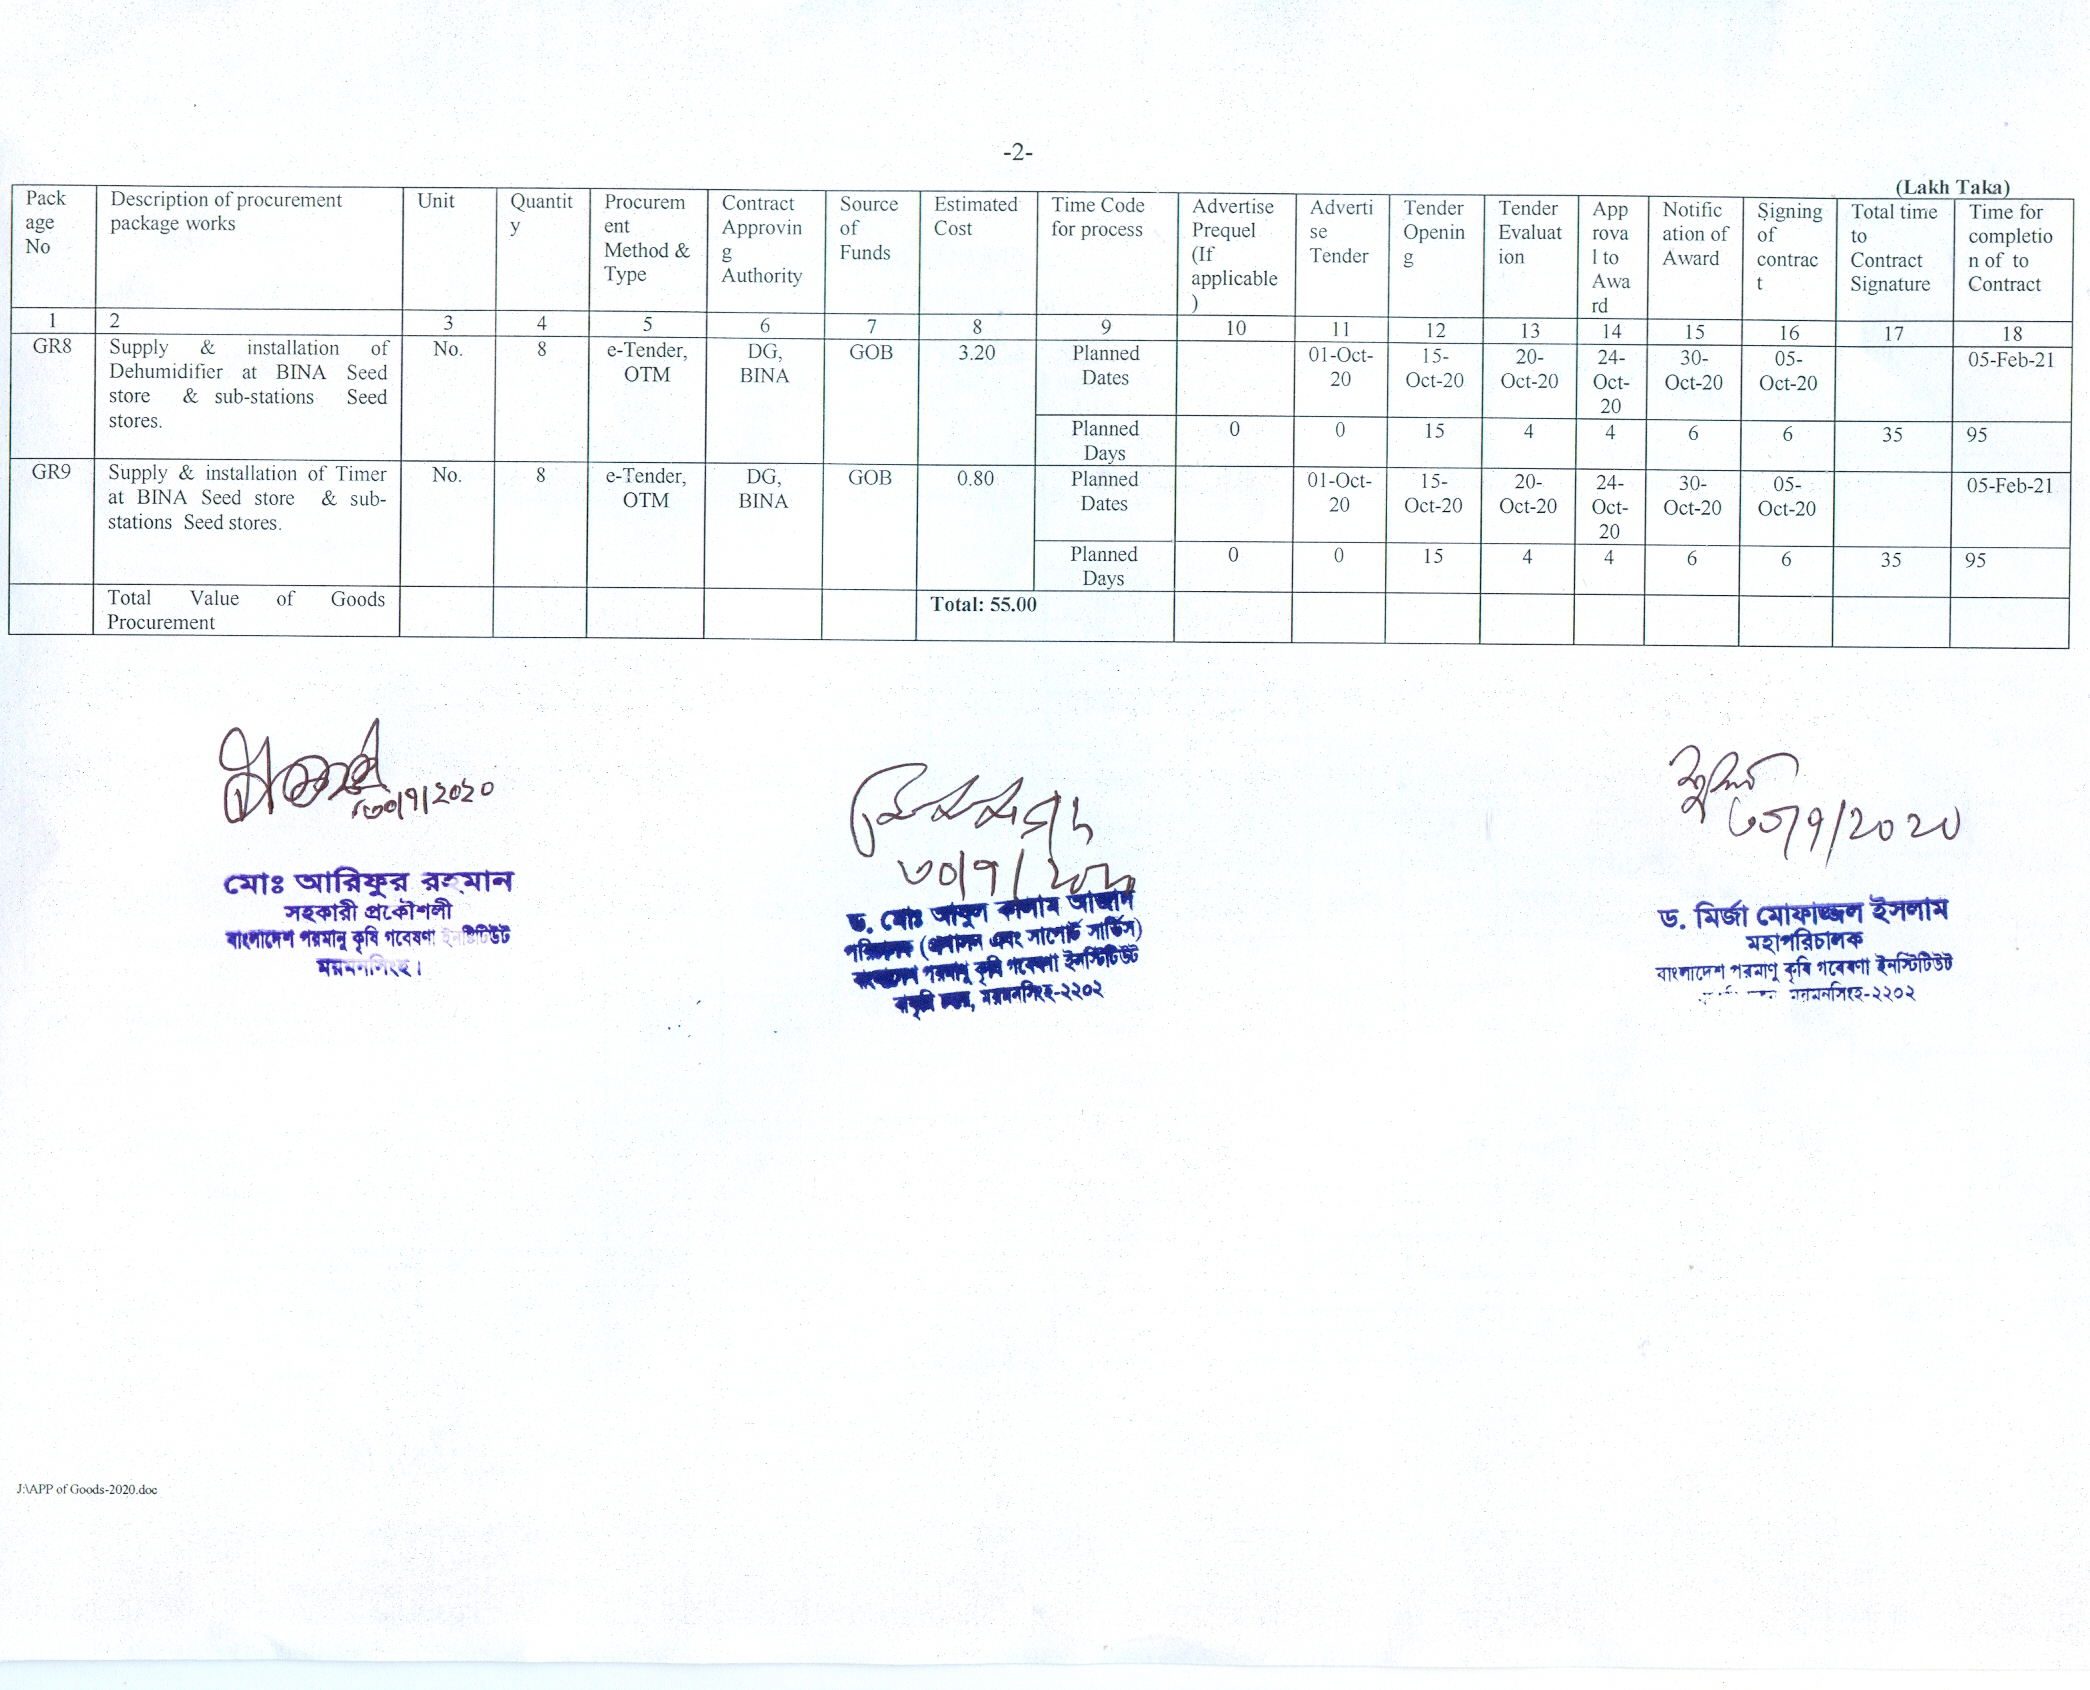 -2-
(Lakh Taka)
Pack age No | Description of procurement package works | Unit | Quantit y | Procurem ent Method & Type | Contract Approvin g Authority | Source of Funds | Estimated Cost | Time Code for process | Advertise Prequel (If applicable ) | Adverti se Tender | Tender Openin g | Tender Evaluat ion | App rova l to Awa rd | Notific ation of Award | Signing of contrac t | Total time to Contract Signature | Time for completio n of to Contract
1 | 2 | 3 | 4 | 5 | 6 | 7 | 8 | 9 | 10 | 11 | 12 | 13 | 14 | 15 | 16 | 17 | 18
GR8 | Supply & installation of Dehumidifier at BINA Seed store & sub-stations Seed stores. | No. | 8 | e-Tender, OTM | DG, BINA | GOB | 3.20 | Planned Dates | | 01-Oct-20 | 15-Oct-20 | 20-Oct-20 | 24-Oct-20 | 30-Oct-20 | 05-Oct-20 | | 05-Feb-21
Planned Days | 0 | 0 | 15 | 4 | 4 | 6 | 6 | 35 | 95
GR9 | Supply & installation of Timer at BINA Seed store & sub-stations Seed stores. | No. | 8 | e-Tender, OTM | DG, BINA | GOB | 0.80 | Planned Dates | | 01-Oct-20 | 15-Oct-20 | 20-Oct-20 | 24-Oct-20 | 30-Oct-20 | 05-Oct-20 | | 05-Feb-21
Planned Days | 0 | 0 | 15 | 4 | 4 | 6 | 6 | 35 | 95
Total Value of Goods Procurement | Total: 55.00
৩০/৭/২০২০
মোঃ আরিফুর রহমান
সহকারী প্রকৌশলী
বাংলাদেশ পরমানু কৃষি গবেষণা ইনষ্টিটিউট
ময়মনসিংহ।
৩০/৭/২০২০
ড. মোঃ আবুল কালাম আজাদ
পরিচালক (প্রশাসন এবং সাপোর্ট সার্ভিস)
বাংলাদেশ পরমাণু কৃষি গবেষণা ইনস্টিটিউট
বাকৃবি চত্বর, ময়মনসিংহ-২২০২
৩০/৭/২০২০
ড. মির্জা মোফাজ্জল ইসলাম
মহাপরিচালক
বাংলাদেশ পরমাণু কৃষি গবেষণা ইনস্টিটিউট
ময়মনসিংহ-২২০২
J:\APP of Goods-2020.doc